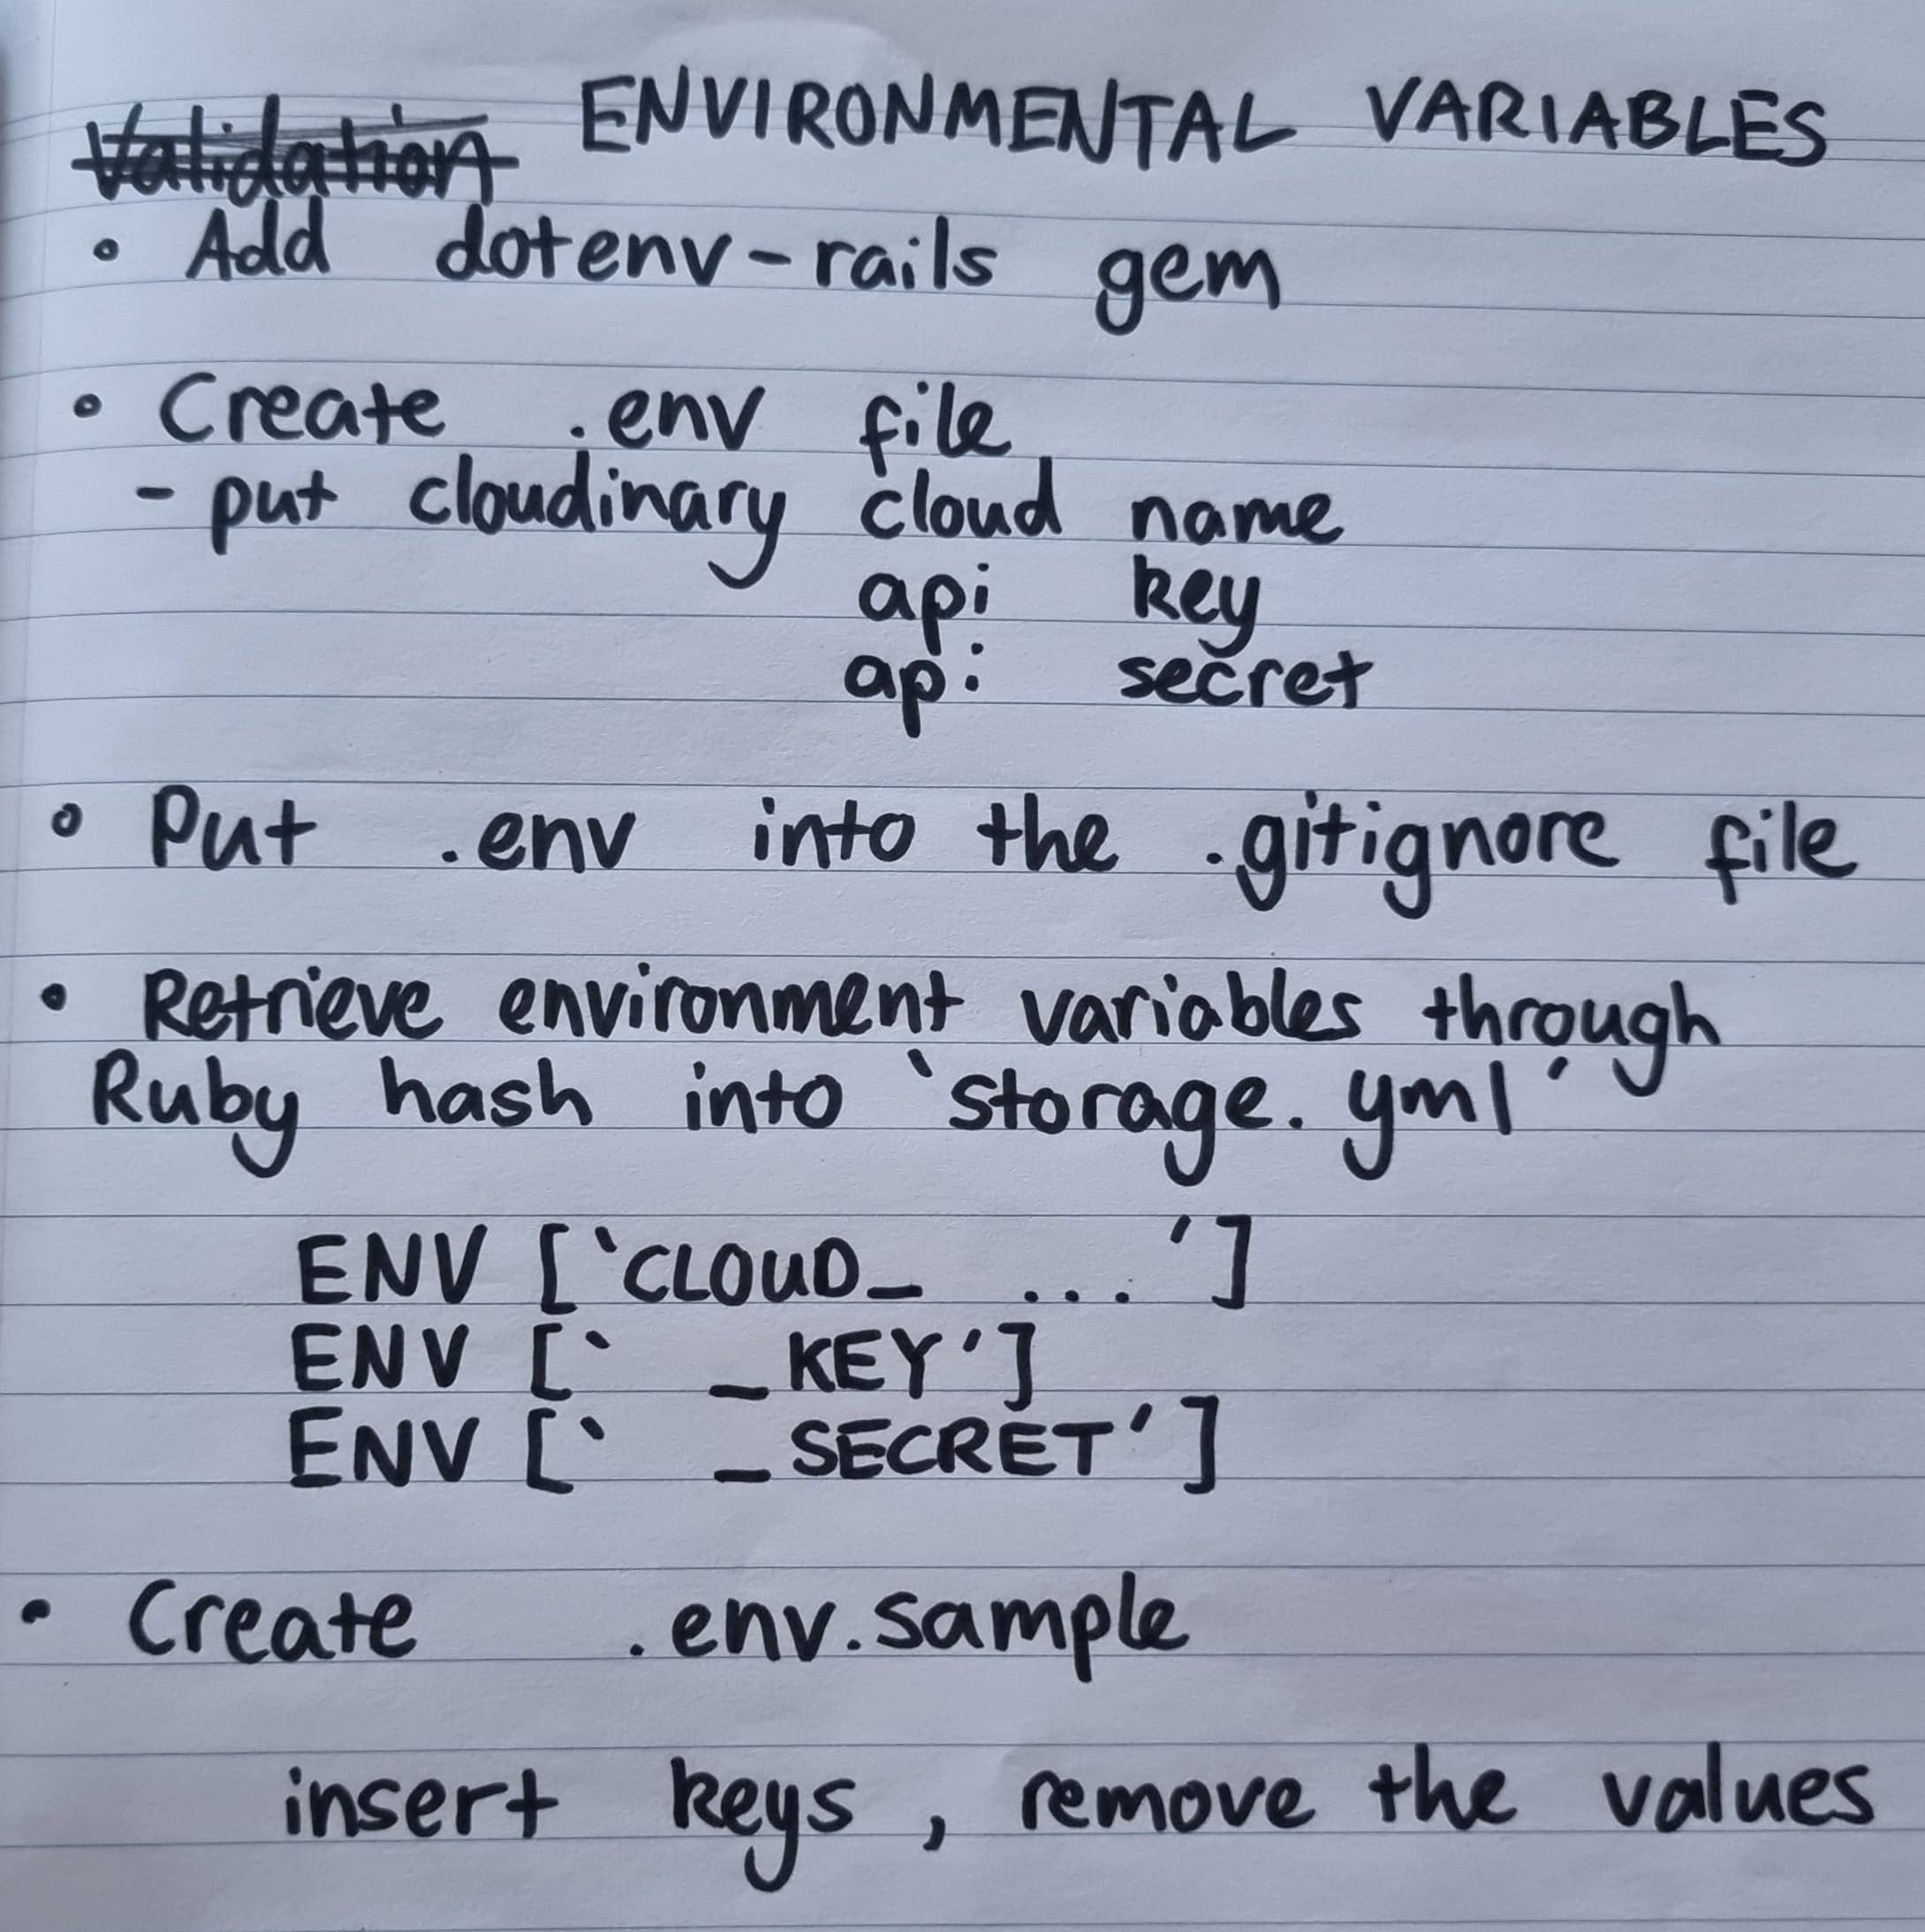 Validation ENVIRONMENTAL VARIABLES
• Add dotenv-rails gem
• Create .env file
- put cloudinary cloud name
api key
api secret
• Put .env into the .gitignore file
• Retrieve environment variables through
Ruby hash into `storage.yml'
ENV [`CLOUD_ ...']
ENV [` _KEY']
ENV [` _SECRET']
• Create .env.sample
insert keys, remove the values